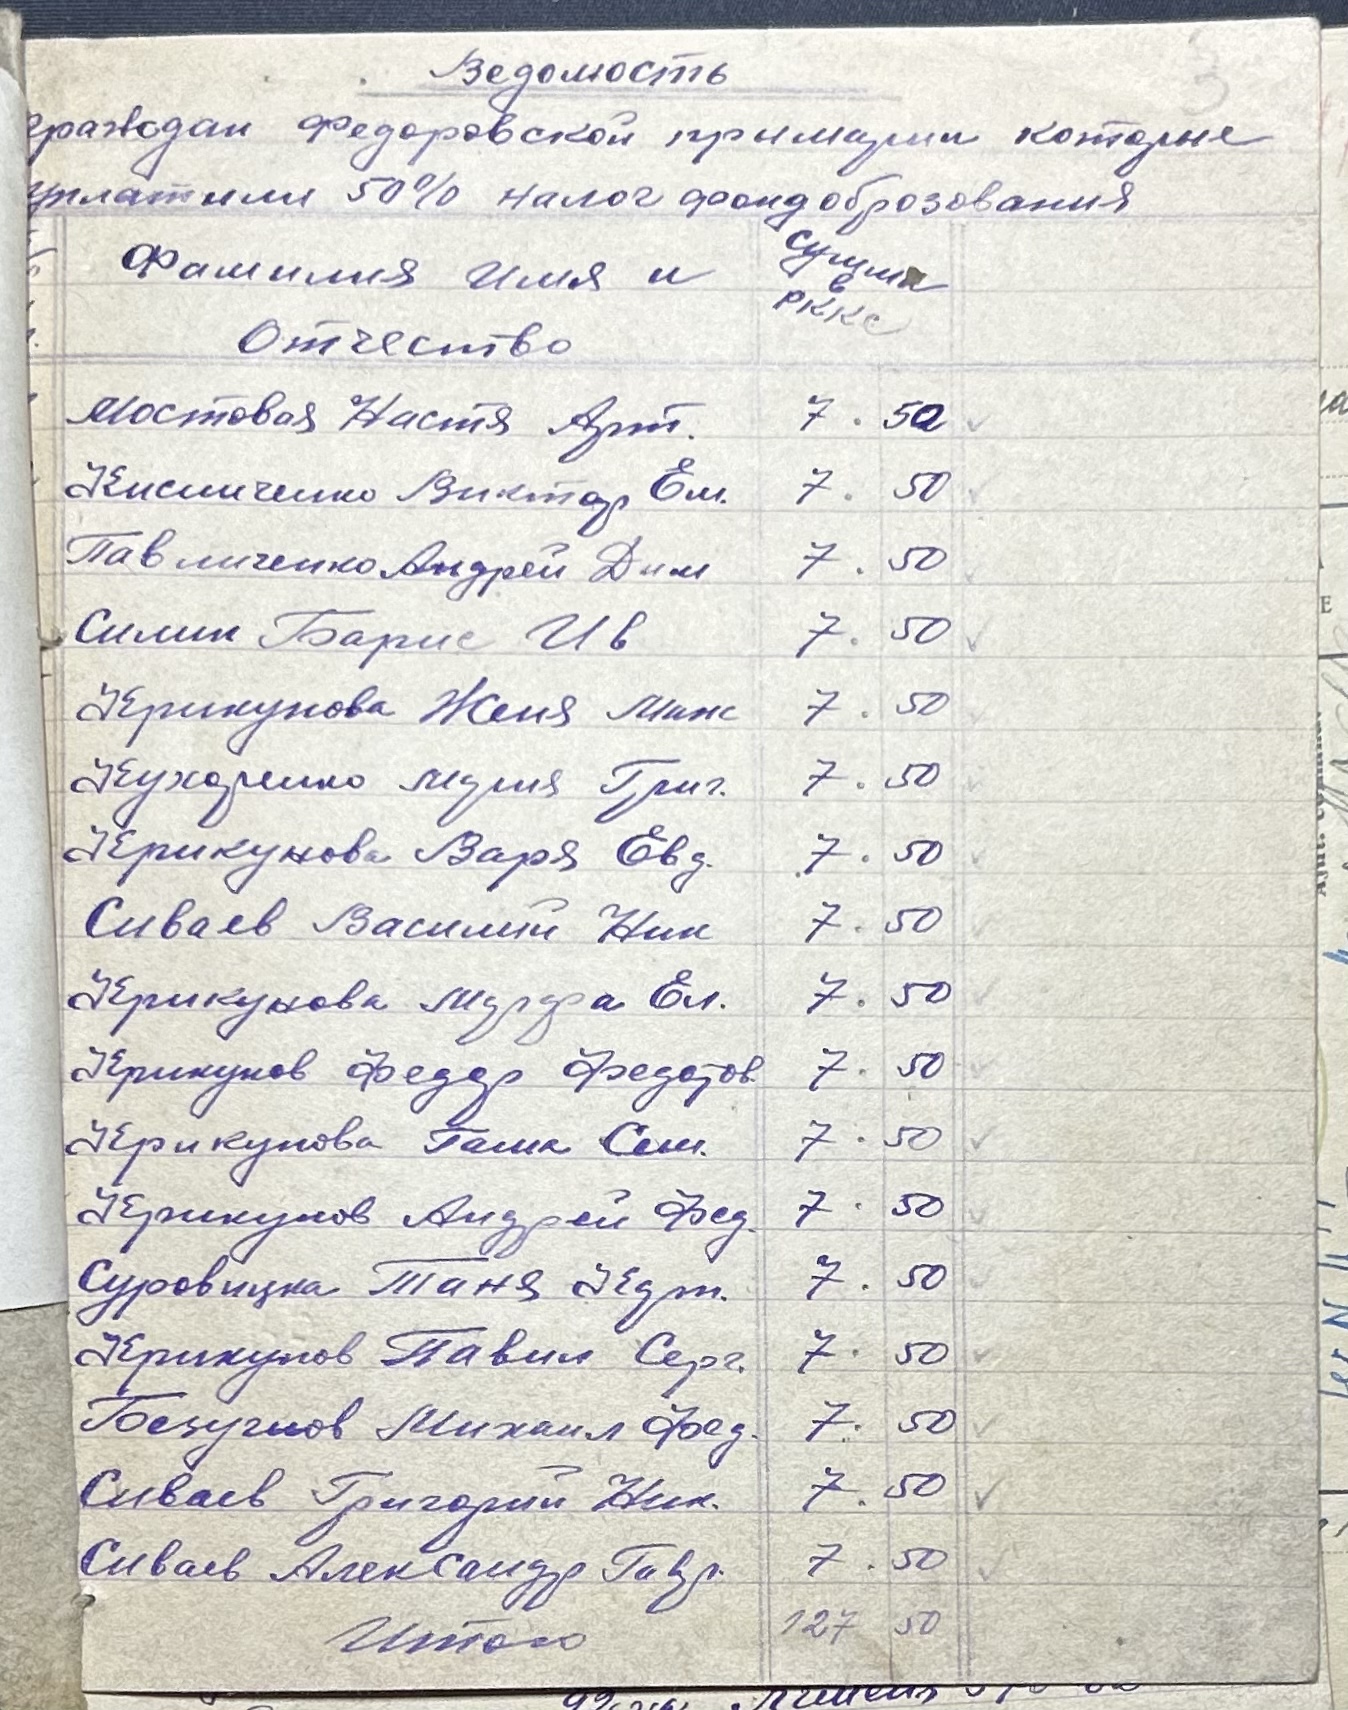 Ведомость
граждан Федоровской примарии которые
уплатили 50% налог фондоброзования
Фамилия Имя и
Отчество
Сумма
в
РККС
Мостовая Настя Арт. 7. 50
Кисличенко Виктор Ем. 7. 50
Павличенко Андрей Дим 7. 50
Силин Борис Ив 7. 50
Крикунова Женя Макс 7. 50
Кухаренко Мария Григ. 7. 50
Крикунова Варя Евд. 7. 50
Сиваев Василий Ник 7. 50
Крикунова Марфа Ел. 7. 50
Крикунов Федор Федотов. 7. 50
Крикунова Галя Сем. 7. 50
Крикунов Андрей Фед. 7. 50
Суровицка Таня Кдт. 7. 50
Крикунов Павил Серг. 7. 50
Безуглов Михаил Фед. 7. 50
Сиваев Григорий Ник. 7. 50
Сиваев Александр Гавр. 7. 50
Итого 127 50